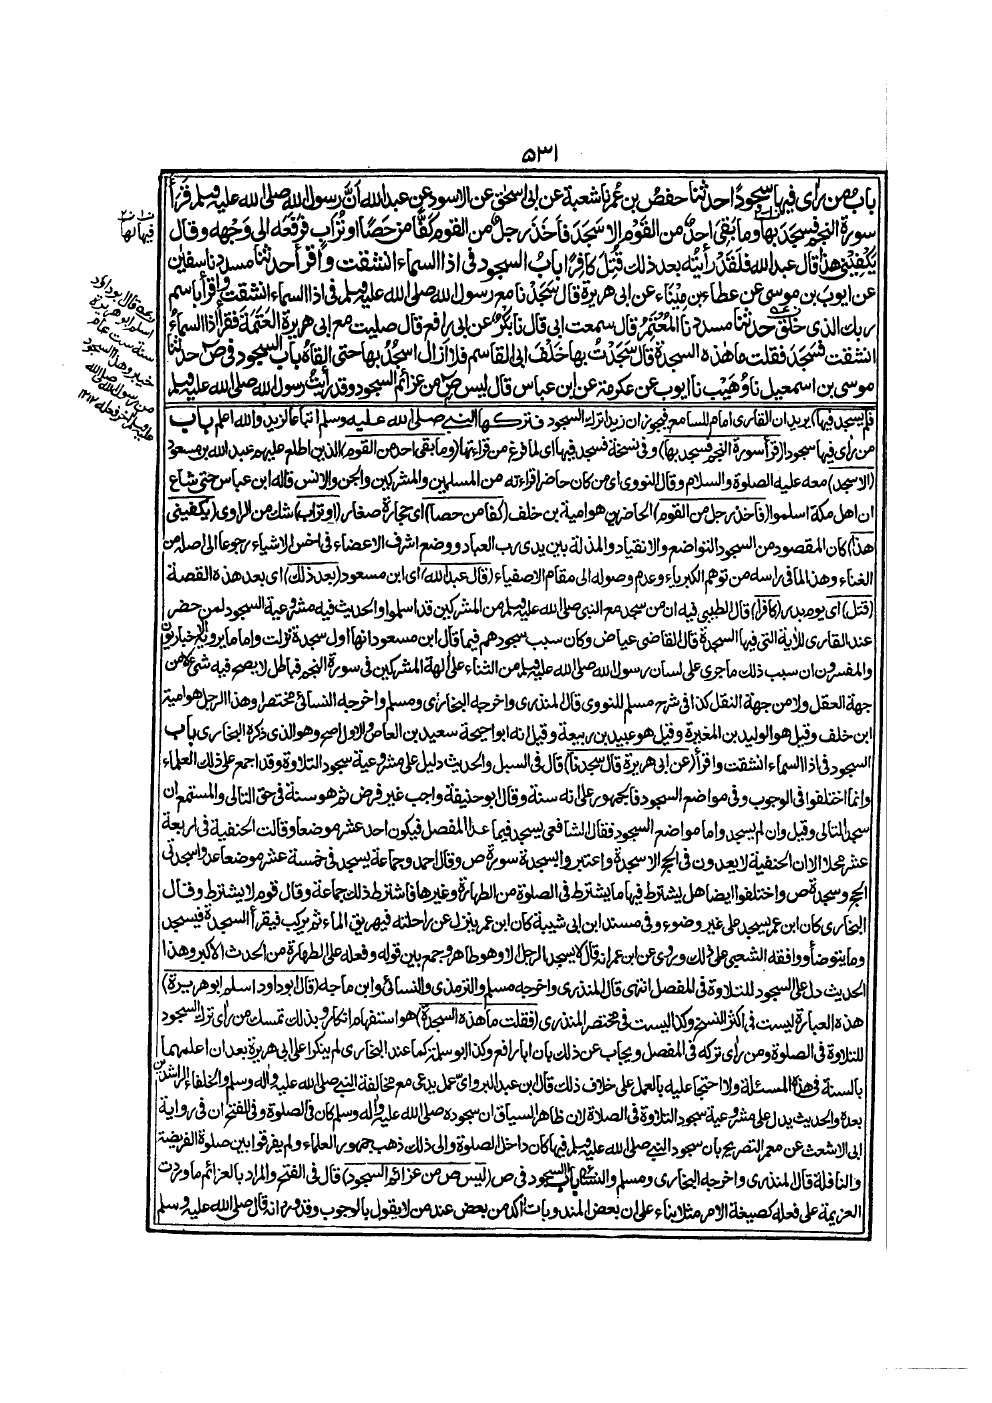 ٥٣١
باب من رأى فيها سجودا حدثنا حفص بن عمر نا شعبة عن ابى اسحٰق عن الاسود عن عبد الله أن رسول الله صلى الله عليه وسلم قرأ
سورة النجم فسجد بها وما بقى احد من القوم الا سجد فأخذ رجل من القوم كفا من حصا او تراب فرفعه الى وجهه وقال
يكفينى هذا قال عبد الله فلقد رأيته بعد ذلك قتل كافرا باب السجود فى اذا السماء انشقت واقرأ حدثنا مسدد نا سفين
عن ايوب بن موسى عن عطاء بن ميناء عن ابى هريرة قال سجدنا مع رسول الله صلى الله عليه وسلم فى اذا السماء انشقت واقرأ باسم
ربك الذى خلق حدثنا مسدد نا المعتمر قال سمعت ابى قال نا بكر عن ابى رافع قال صليت مع ابى هريرة العتمة فقرأ اذا السماء
انشقت فسجد فقلت ما هذه السجدة قال سجدت بها خلف ابى القاسم فلا ازال اسجد بها حتى القاه باب السجود فى ص حدثنا
موسى بن اسمعيل نا وهيب نا ايوب عن عكرمة عن ابن عباس قال ليس ص من عزائم السجود وقد رأيت رسول الله صلى الله عليه وسلم
فلم يسجد فيها) يريد ان القارى امام للسامع فيجوز ان زيدا ترك السجود فتركها النبى صلى الله عليه وسلم اتباعا لزيد والله اعلم باب
من رأى فيها سجودا (قرأ سورة النجم فسجد بها) وفى نسخة فسجد فيها اى لما فرغ من قراءتها (وما بقى احد من القوم) الذين اطلع عليهم عبد الله بن مسعود
(الا سجد) معه عليه الصلوة والسلام وقال النووى اى من كان حاضر اقراءته من المسلمين والمشركين والجن والانس قاله ابن عباس حتى شاع
ان اهل مكة اسلموا (فأخذ رجل من القوم) الحاضرين هو امية بن خلف (كفا من حصا) اى حجارة صغار (او تراب) شك من الراوى (يكفينى
هذا) كان المقصود من السجود التواضع والانقياد والمذلة بين يدى رب العباد ووضع اشرف الاعضاء فى اخس الاشياء رجوعا الى اصله من
الفناء وهذا لما فى راسه من توهم الكبرياء وعدم وصوله الى مقام الاصفياء (قال عبد الله) اى ابن مسعود (بعد ذلك) اى بعد هذه القصة
(قتل) اى يوم بدر (كافرا) قال الطيبى فيه ان من سجد مع النبى صلى الله عليه وسلم من المشركين قد اسلموا والحديث فيه مشروعية السجود لمن حضر
عند القارى للآية التى فيها السجدة قال القاضى عياض وكان سبب سجودهم فيما قال ابن مسعود انها اول سجدة نزلت واما ما يرويه الاخباريون
والمفسرون ان سبب ذلك ما جرى على لسان رسول الله صلى الله عليه وسلم من الثناء على الهة المشركين فى سورة النجم فباطل لا يصح فيه شىء لا من
جهة العقل ولا من جهة النقل كذا فى شرح مسلم للنووى قال المنذرى واخرجه البخارى ومسلم واخرجه النسائى مختصرا وهذا الرجل هو امية
ابن خلف وقيل هو الوليد بن المغيرة وقيل هو عبيد بن ربيعة وقيل انه ابو احيحة سعيد بن العاص والاول اصح وهو الذى ذكره البخارى باب
السجود فى اذا السماء انشقت واقرأ (عن ابى هريرة قال سجدنا) قال فى السبل والحديث دليل على مشروعية سجود التلاوة وقد اجمع على ذلك العلماء
وانما اختلفوا فى الوجوب وفى مواضع السجود فالجمهور على انه سنة وقال ابو حنيفة واجب غير فرض ثم هو سنة فى حق التالى والمستمع ان
سجد التالى وقيل وان لم يسجد واما مواضع السجود فقال الشافعى يسجد فيما عدا المفصل فيكون احد عشر موضعا وقالت الحنفية فى اربعة
عشر محلا الا ان الحنفية لا يعدون فى الحج الا سجدة واعتبروا بسجدة سورة ص وقال احمد وجماعة يسجد فى خمسة عشر موضعا عدوا سجدتى
الحج وسجدة ص واختلفوا ايضا هل يشترط فيها ما يشترط فى الصلوة من الطهارة وغيرها فاشترط ذلك جماعة وقال قوم لا يشترط وقال
البخارى كان ابن عمر يسجد على غير وضوء وفى مسند ابن ابى شيبة كان ابن عمر ينزل عن راحلته فيهريق الماء ثم يركب فيقرأ السجدة فيسجد
وما يتوضأ ووافقه الشعبى على ذلك وروى عن ابن عمر انه قال لا يسجد الرجل الا وهو طاهر وجمع بين قوله وفعله على الطهارة من الحدث الاكبر وهذا
الحديث دل على السجود للتلاوة فى المفصل انتهى قال المنذرى واخرجه مسلم والترمذى والنسائى وابن ماجه (قال ابو داود اسلم ابو هريرة)
هذه العبارة ليست فى اكثر النسخ وكذا ليست فى مختصر المنذرى (فقلت ما هذه السجدة) هو استفهام انكار وبذلك تمسك من رأى ترك السجود
للتلاوة فى الصلوة ومن رأى تركه فى المفصل ويجاب عن ذلك بان ابا رافع وكذا ابو سلمة كما عند البخارى لم ينكرا على ابى هريرة بعد ان اعلمهما
بالسنة فى هذا المسئلة ولا احتجا عليه بالعمل على خلاف ذلك قال ابن عبد البر واى عمل يدعى مع مخالفة النبى صلى الله عليه واله وسلم والخلفاء الراشدين
بعده والحديث يدل على مشروعية سجود التلاوة فى الصلاة لان ظاهر السياق ان سجوده صلى الله عليه واله وسلم كان فى الصلوة وفى الفتح ان فى رواية
ابى الاشعث عن معمر التصريح بان سجود النبى صلى الله عليه وسلم فيها كان داخل الصلوة والى ذلك ذهب جمهور العلماء ولم يفرقوا بين صلوة الفريضة
والنافلة قال المنذرى واخرجه البخارى ومسلم والنسائى باب السجود فى ص (ليس ص من عزائم السجود) قال فى الفتح والمراد بالعزائم ما وردت
العزيمة على فعله كصيغة الامر مثلا بناء على ان بعض المندوبات آكد من بعض عند من لا يقول بالوجوب وقد روى انه قال صلى الله عليه وسلم
فيها بها
قال ابو داود
اسلم ابو هريرة
سنة ست عام
خيبر وهذا السجود
من رسول الله صلى الله
عليه وسلم آخر فعله